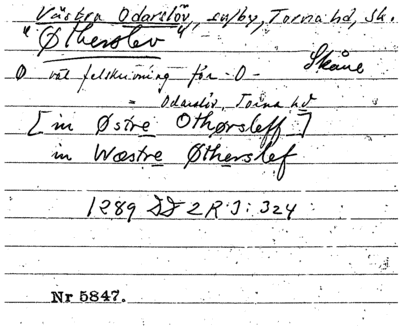 Västra Odarslöv, sn/by, Torna hd, Sk.
"Øtherslev"
Skåne
Ø väl felskrivning för -O-
= Odarslöv, Torna hd
[in Østre Othørsleff]
in Wæstre Øtherslef
1289 DD 2 R: 3: 324
Nr 5847.